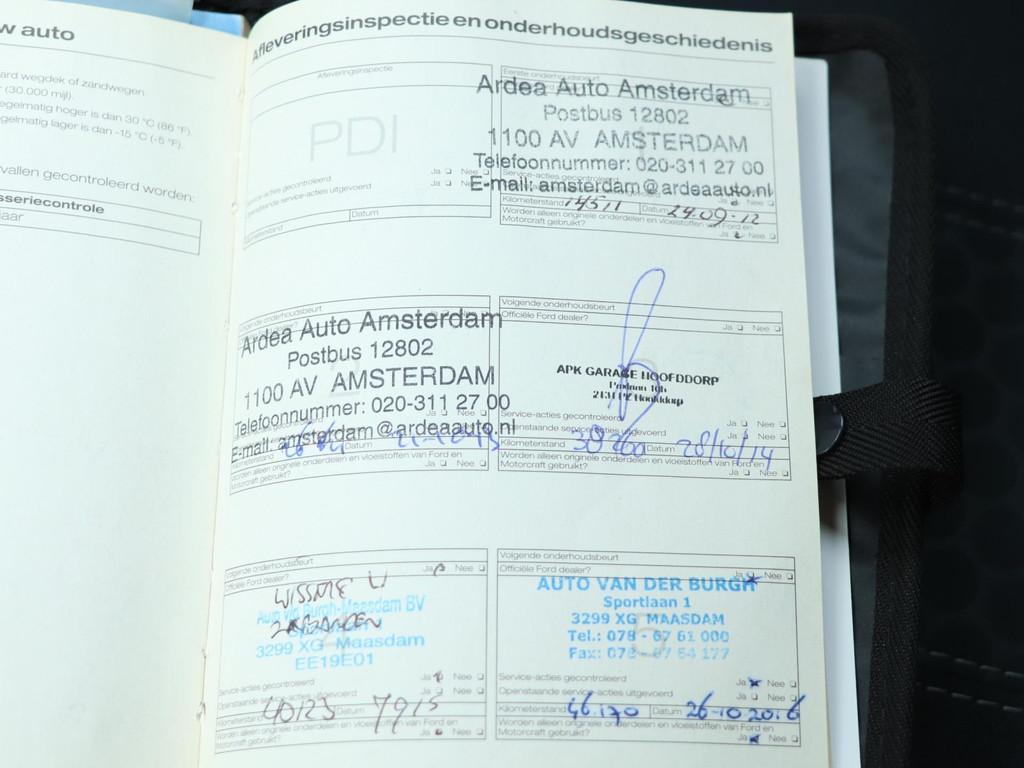 w auto
ard wegdek of zandwegen.
(30.000 mijl).
egelmatig hoger is dan 30 °C (86 °F).
gelmatig lager is dan -15 °C (-5 °F).
vallen gecontroleerd worden:
sseriecontrole
aar
Afleveringsinspectie en onderhoudsgeschiedenis
Afleveringsinspectie
PDI
Ja Nee
service-acties gecontroleerd
Ja Nee
Openstaande service-acties uitgevoerd
Datum
Kilometerstand
Eerste onderhoudsbeurt
Ardea Auto Amsterdam
Postbus 12802
1100 AV AMSTERDAM
Telefoonnummer: 020-311 27 00
E-mail: amsterdam@ardeaauto.nl
Ja Nee
Kilometerstand 14511 Datum 24-09-12
Worden alleen originele onderdelen en vloeistoffen van Ford en
Motorcraft gebruikt? Ja Nee
Volgende onderhoudsbeurt
Ardea Auto Amsterdam
Postbus 12802
1100 AV AMSTERDAM
Telefoonnummer: 020-311 27 00
E-mail: amsterdam@ardeaauto.nl
Kilometerstand Datum
Worden alleen originele onderdelen en vloeistoffen van Ford en
Motorcraft gebruikt? Ja Nee
Volgende onderhoudsbeurt
Officiële Ford dealer? Ja Nee
APK GARAGE HOOFDDORP
Service-acties gecontroleerd Ja Nee
Openstaande service-acties uitgevoerd Ja Nee
Kilometerstand 38200 Datum 28/10/14
Worden alleen originele onderdelen en vloeistoffen van Ford en
Motorcraft gebruikt? Ja Nee
Volgende onderhoudsbeurt
Officiële Ford dealer? Ja Nee
3299 XG Maasdam
EE19E01
Service-acties gecontroleerd Ja Nee
Openstaande service-acties uitgevoerd Ja Nee
Kilometerstand 40123 Datum 7915
Worden alleen originele onderdelen en vloeistoffen van Ford en
Motorcraft gebruikt? Ja Nee
Volgende onderhoudsbeurt
Officiële Ford dealer? Ja Nee
AUTO VAN DER BURGH
Sportlaan 1
3299 XG MAASDAM
Tel.: 078 - 67 61 000
Fax: 078 - 67 64 177
Service-acties gecontroleerd Ja Nee
Openstaande service-acties uitgevoerd Ja Nee
Kilometerstand 46.170 Datum 26-10 2016
Worden alleen originele onderdelen en vloeistoffen van Ford en
Motorcraft gebruikt? Ja Nee